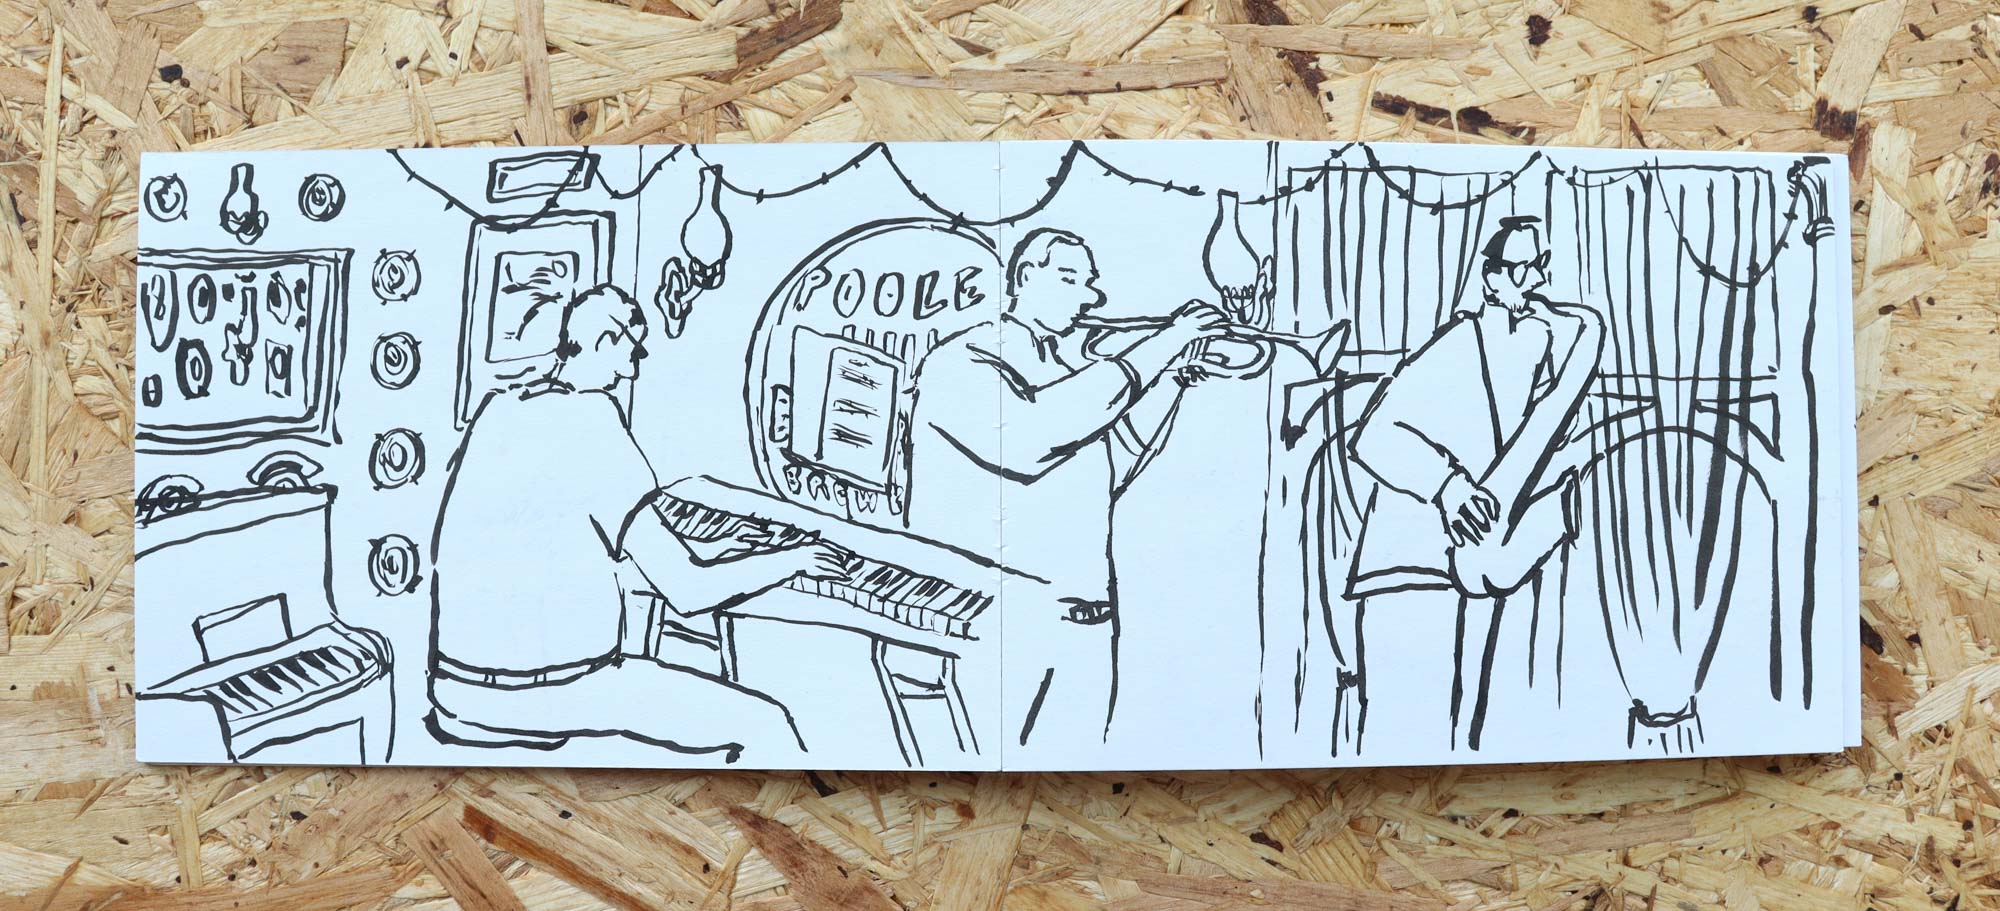 POOLE
BREWE